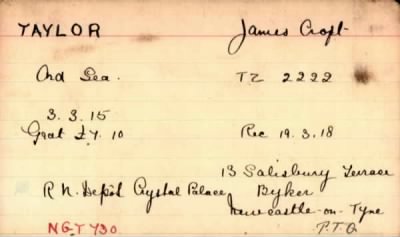 TAYLOR James Croft
Ord Sea. TZ 2222
3.3.15
Grat £7.10 Rec 19.3.18
13 Salisbury Terrace
R N. Depôt Crystal Palace Byker
Newcastle-on-Tyne
NGT 730 P.T.O.